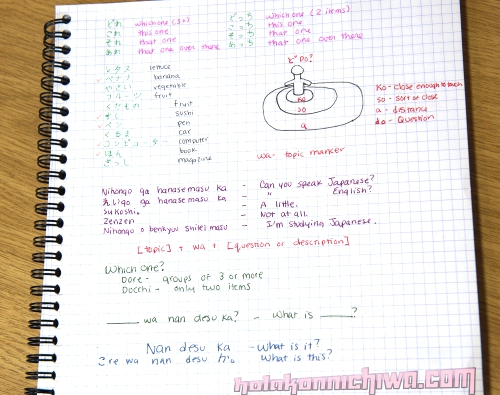 どれ which one (3+) どっち which one (2 items)
これ this one こっち this one
それ that one そっち that one
あれ that one over there あっち that one over there
レタス lettuce
バナナ banana
やさい vegetable
フルーツ fruit
くだもの fruit
すし sushi
ペン pen
くるま car
コンピューター computer
ほん book
ざっし magazine
ど Do?
Ko
so
a
Ko - close enough to touch
so - sort of close
a - distance
do - Question
wa - topic marker
Nihongo ga hanasemasu ka - Can you speak Japanese?
ga hanasemasu ka - " English?
Sukoshi. - A little.
Zenzen - Not at all.
Nihongo o benkyou shite imasu - I'm studying Japanese.
[topic] + wa + [question or description]
Which one?
Dore - groups of 3 or more
Docchi - only two items
______ wan nan desu ka? - What is ______?
Nan desu ka - What is it?
こre wa nan desu か。 What is this?
halakonnichiwa.com